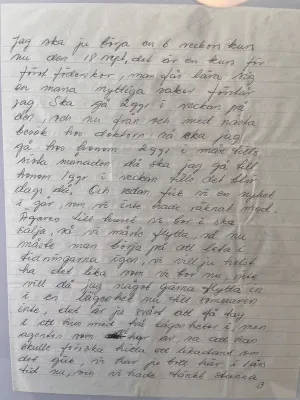 Jag ska ju börja en 6 veckors kurs
nu den 18 sept, det är en kurs för
först föderskor, man får lära sig
en massa nyttiga saker förstår
jag. Ska gå 2ggr i veckan på
den, och nu från och med nästa
besök hos doktorn så ska jag
gå hos honom 2ggr i mån tills
sista månaden då ska jag gå till
honom 1ggr i veckan tills det blir
dags då. Och sedan fick vi en nyhet
i går, som vi inte hade räknat med.
Ägaren till huset vi bor i ska
sälja, så vi måste flytta, så nu
måste man börja på att leta i
tidningarna igen, ja vill ju helst
ha det lika som vi bor nu, inte
vill då jag något gärna flytta in
i en lägenhet nu till sommaren
inte, det är ju svårt att få tag
i ett hus med två lägenheter i, men
agenten som har sa att han
skulle försöka hitta ett likadant som
det själv, vi har ju bott här i lån
tid nu, och vi hade tänkt stanna